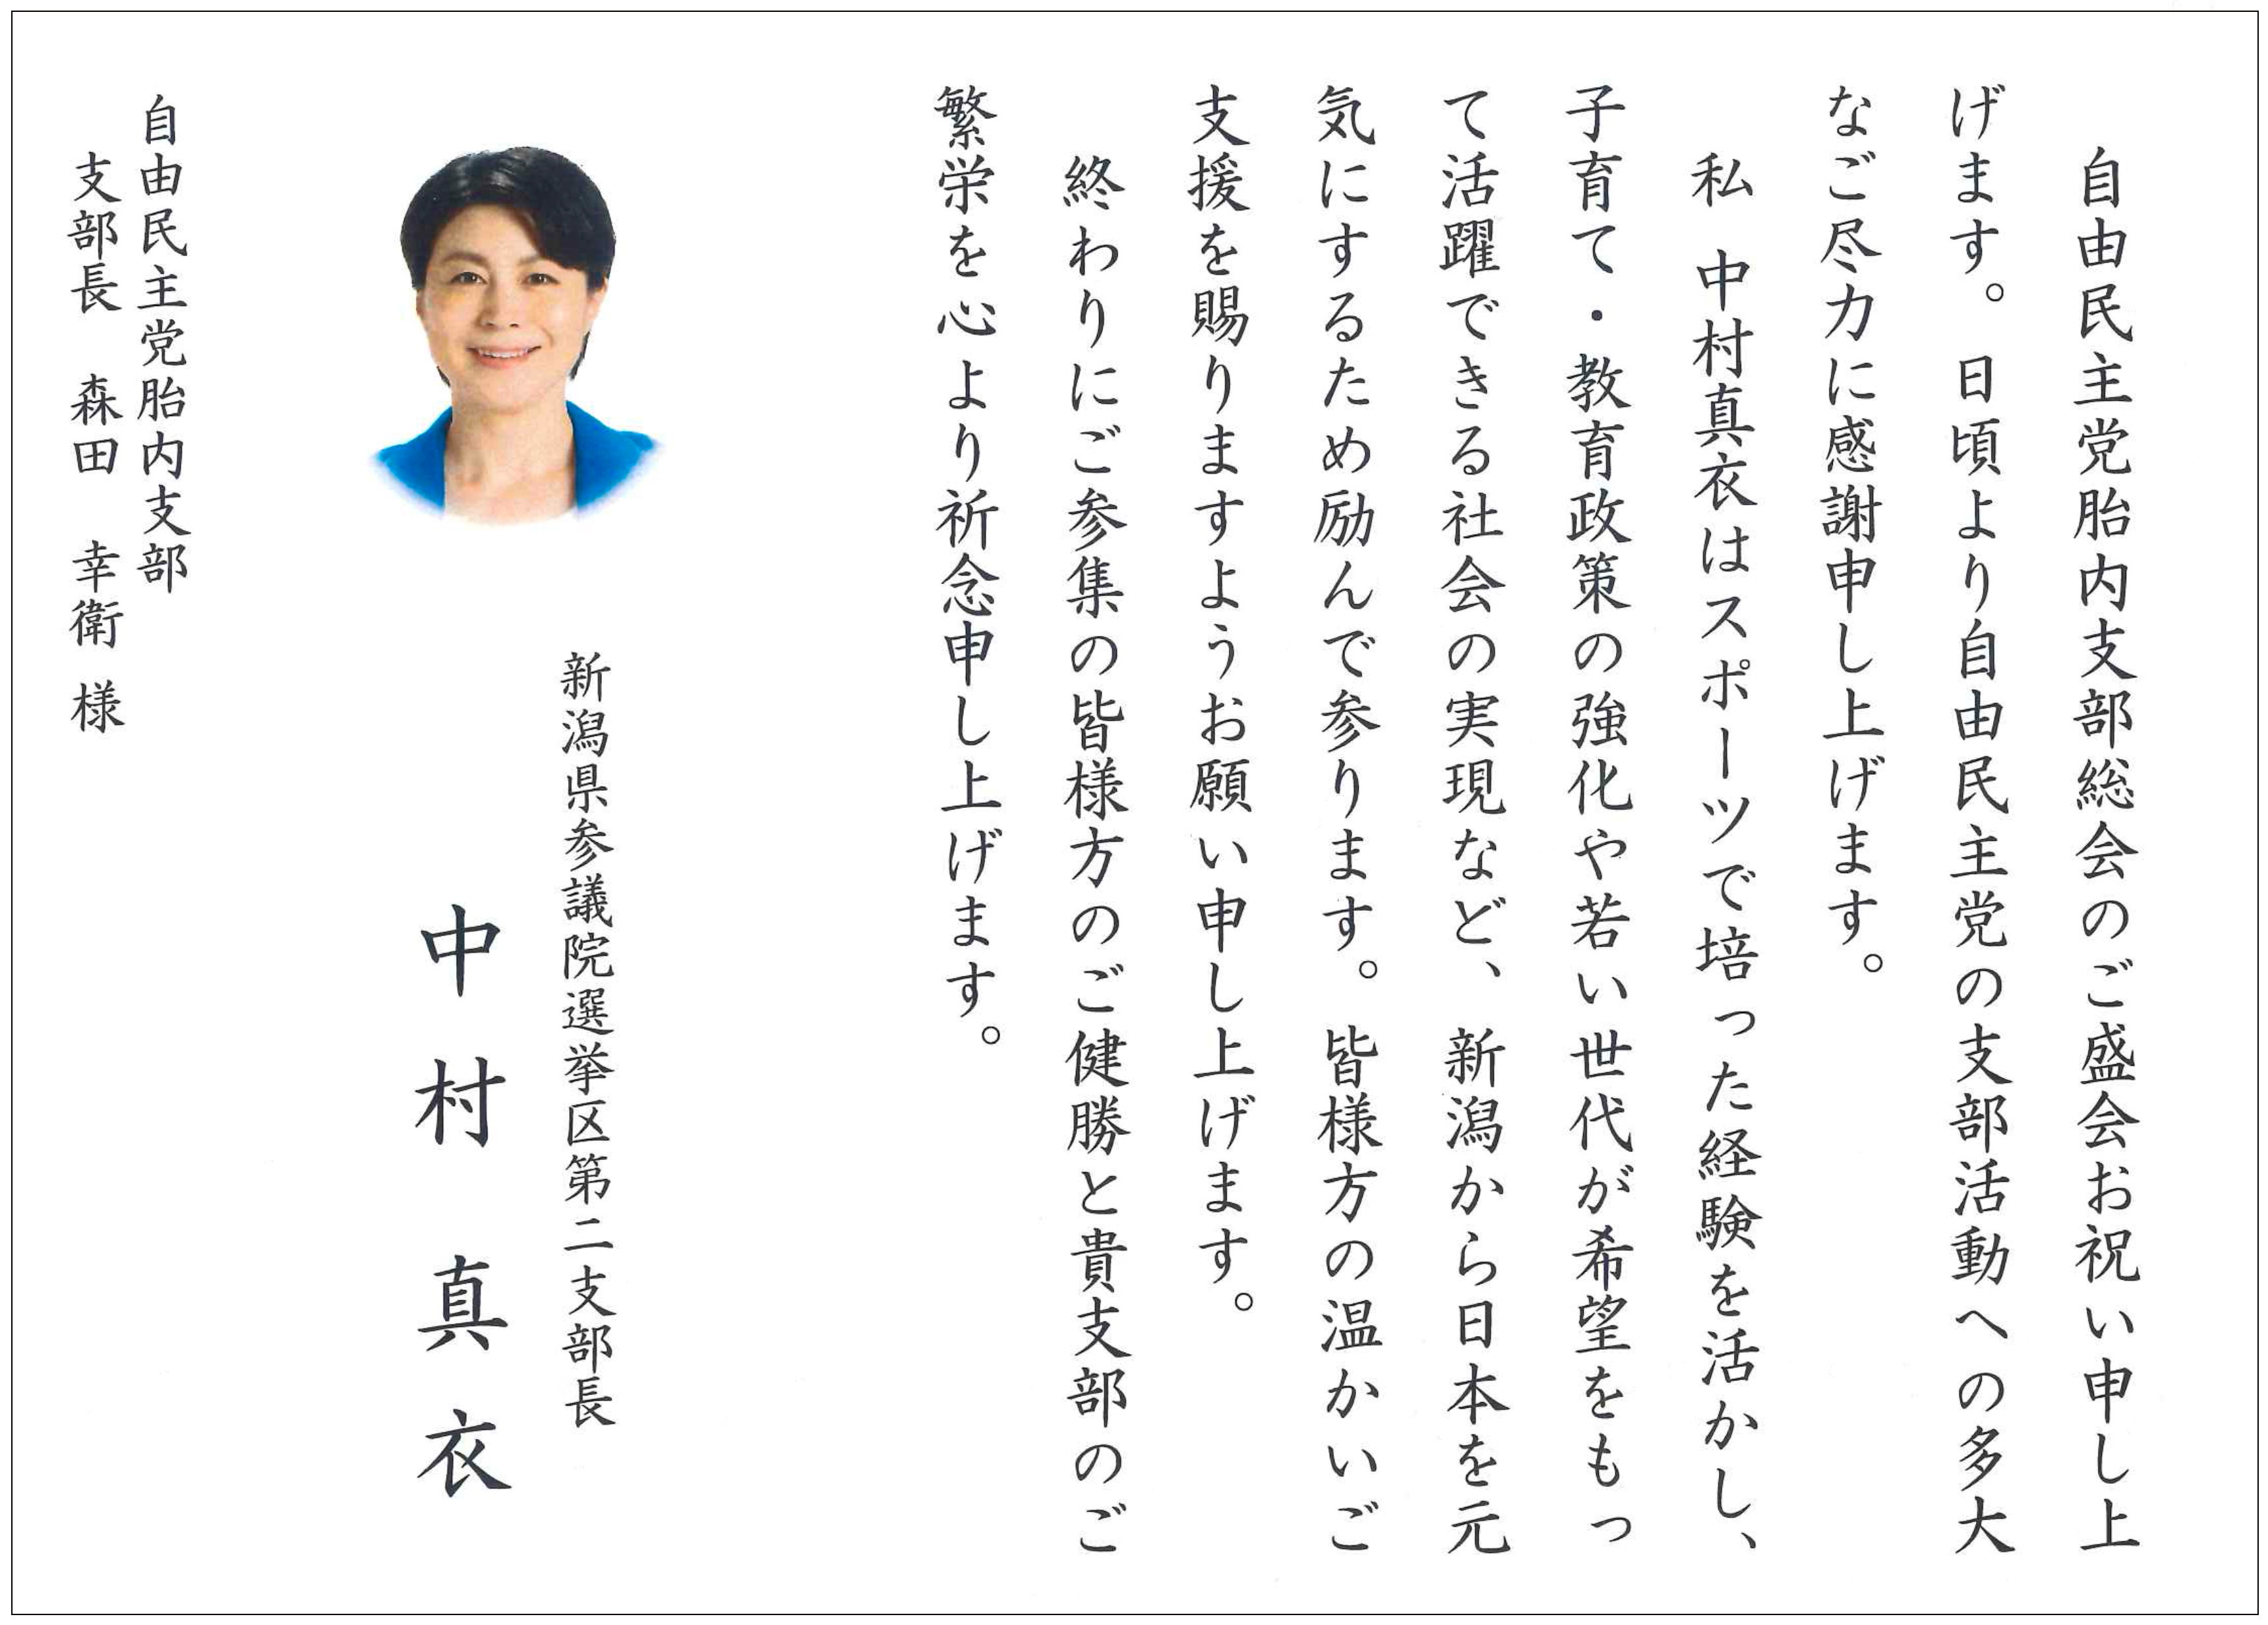 自由民主党胎内支部総会のご盛会お祝い申し上
げます。日頃より自由民主党の支部活動への多大
なご尽力に感謝申し上げます。
私 中村真衣はスポーツで培った経験を活かし、
子育て・教育政策の強化や若い世代が希望をもっ
て活躍できる社会の実現など、新潟から日本を元
気にするため励んで参ります。皆様方の温かいご
支援を賜りますようお願い申し上げます。
終わりにご参集の皆様方のご健勝と貴支部のご
繁栄を心より祈念申し上げます。
新潟県参議院選挙区第二支部長
中村 真衣
自由民主党胎内支部
支部長 森田 幸衛 様